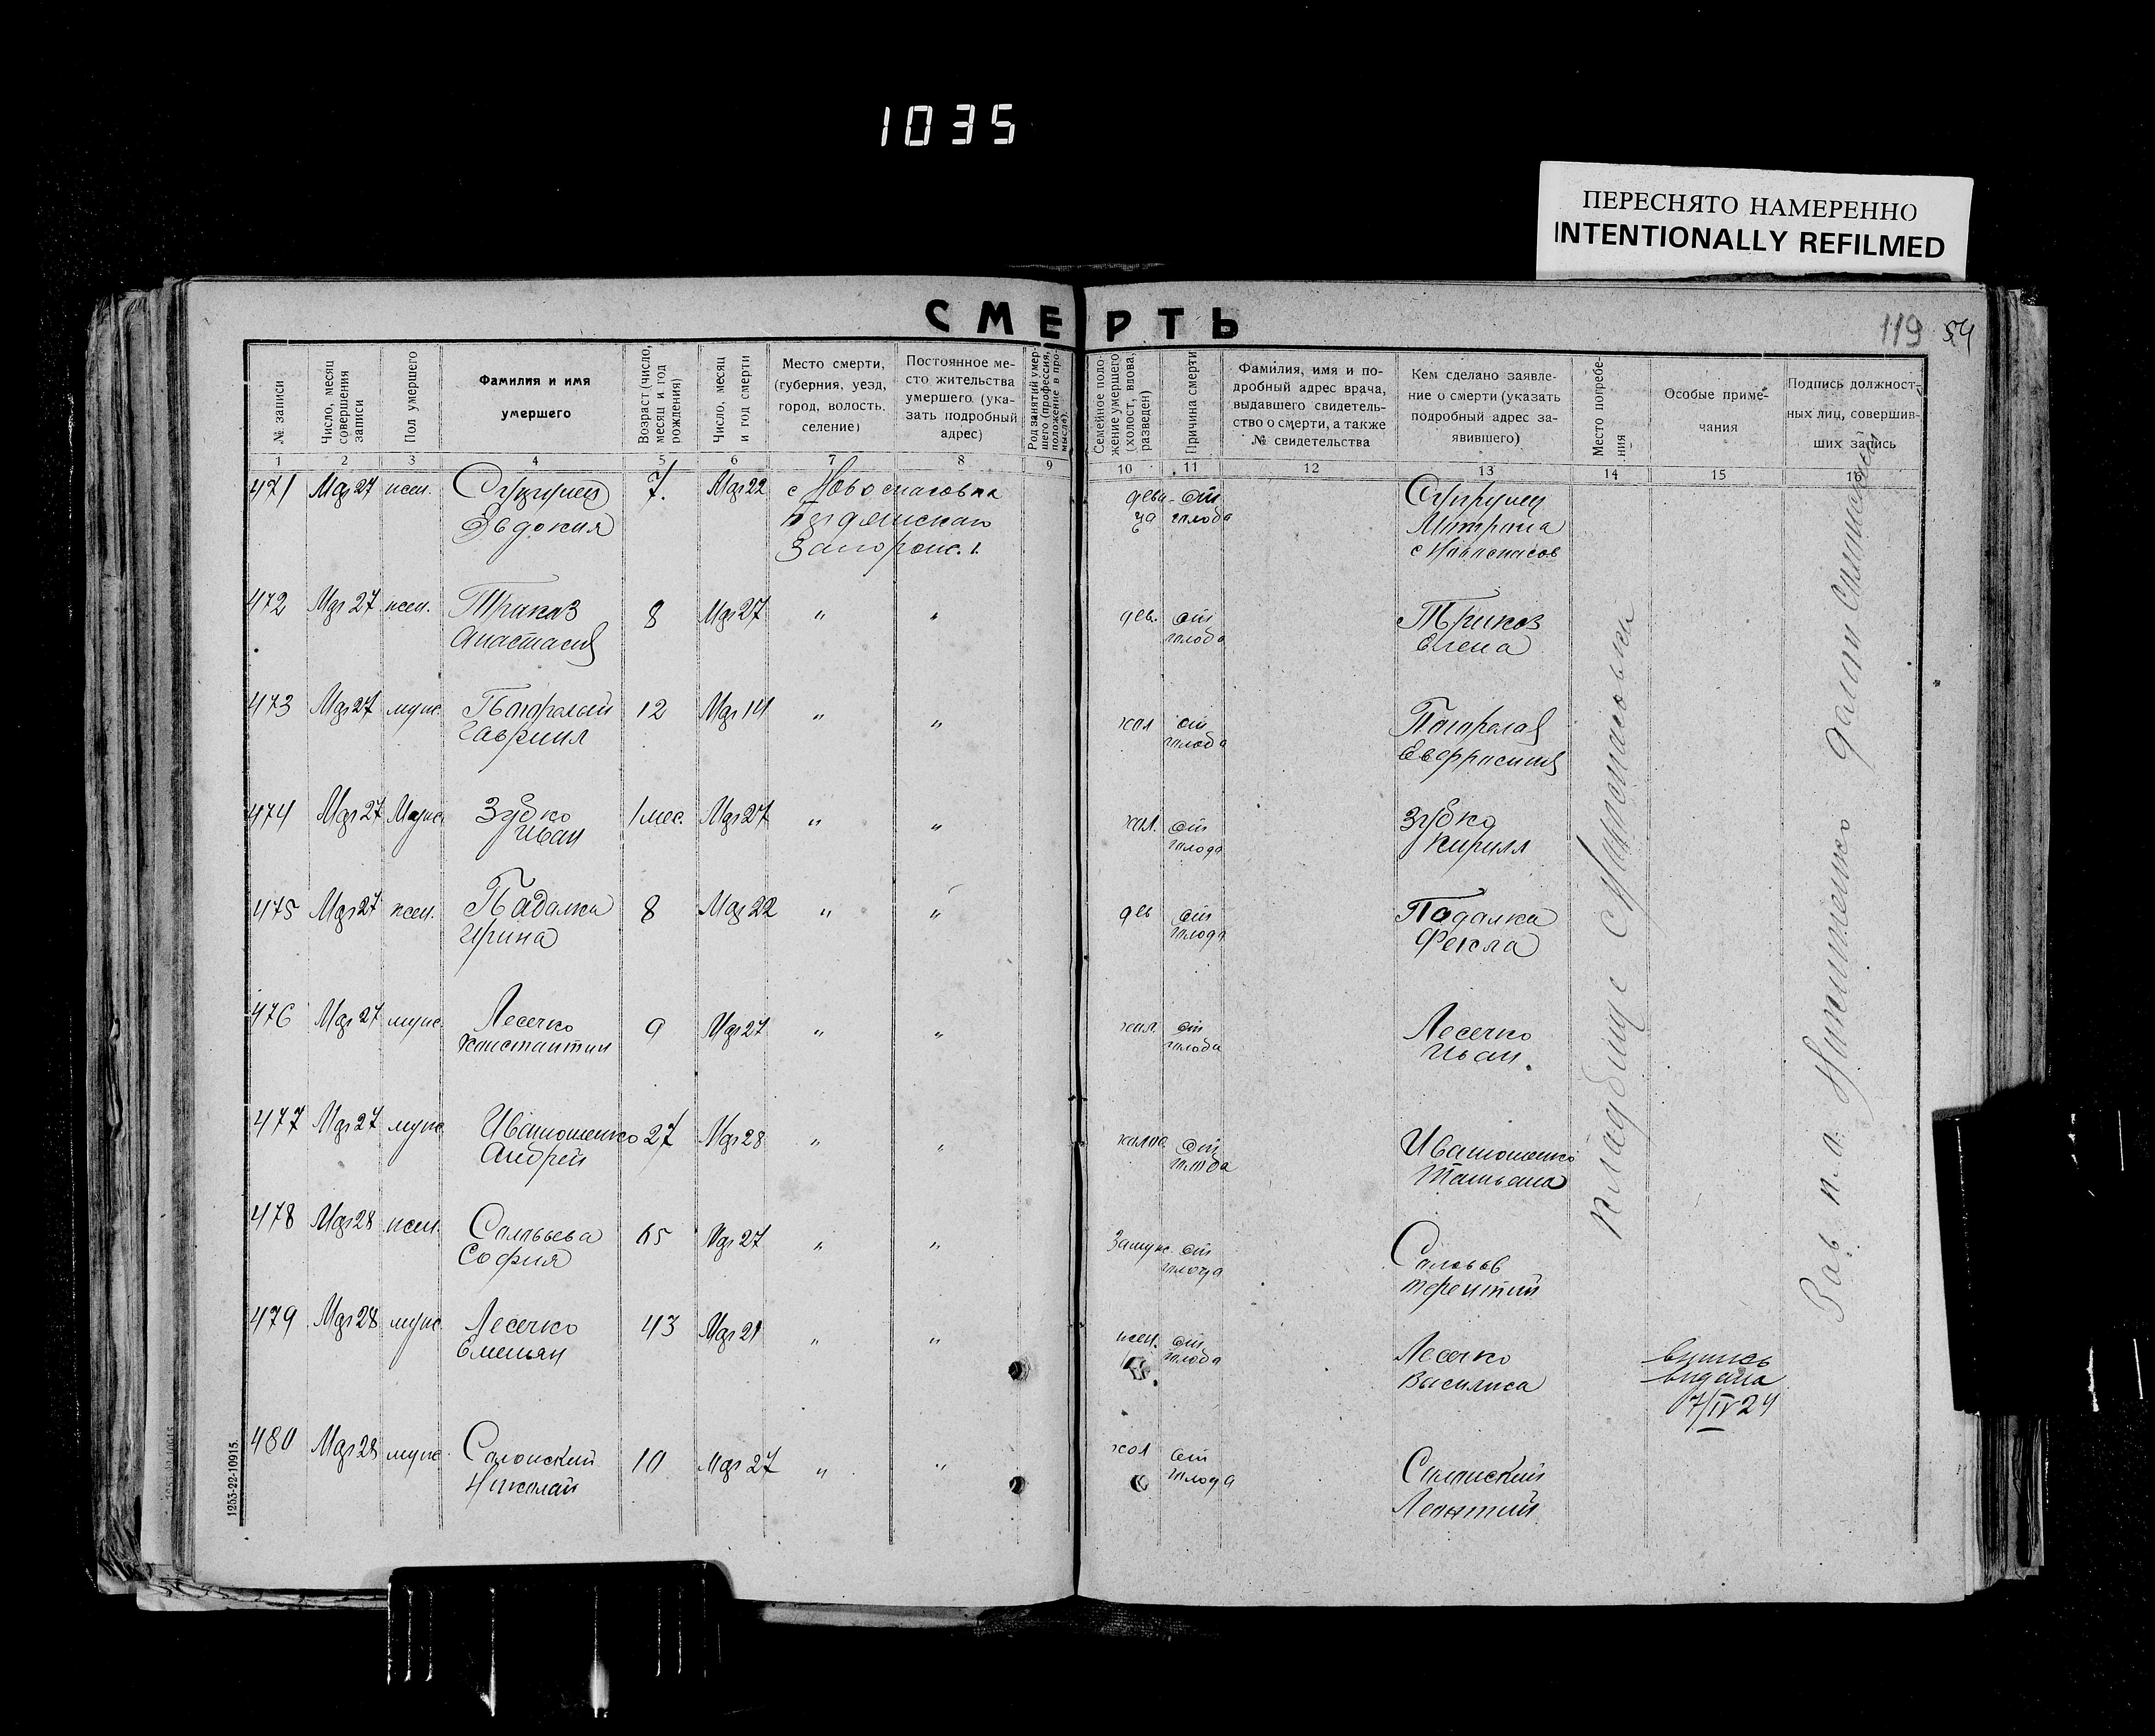 1035
ПЕРЕСНЯТО НАМЕРЕННО
INTENTIONALLY REFILMED
СМЕРТЬ
119 54
№ записи
Число, месяц совершения записи
Пол умершего
Фамилия и имя умершего
Возраст (число, месяц и год рождения)
Число, месяц и год смерти
Место смерти, (губерния, уезд, город, волость, селение)
Постоянное место жительства умершего (указать подробный адрес)
Род занятий умершего (профессия, положение в промысле).
Семейное положение умершего (холост, вдова, разведен)
Причина смерти
Фамилия, имя и подробный адрес врача, выдавшего свидетельство о смерти, а также № свидетельства
Кем сделано заявление о смерти (указать подробный адрес заявившего)
Место погребения
Особые примечания
Подпись должностных лиц, совершивших запись
1 2 3 4 5 6 7 8 9 10 11 12 13 14 15 16
471 Мая 27 жен. Супрунец 7. Мая 22 с Новоспасовка деви- от Супрунец
Евдокия ца голода
с Новоспасов
472 Мая 27 жен. Трикоз 8 Мая 27 " " дев. от Трикоз
Анастасия голода Елена
473 Мая 27 муж. 12 Мая 14 " " хол от
Гавриил голода Евфросиния
474 Мая 27 Муж. Зубко 1 мес. Мая 27 " " хол. от Зубко
Иван голода Кирилл
475 Мая 27 жен. Падалка 8 Мая 22 " " дев от Падалка
Ирина голода Фекла
476 Мая 27 муж. Лесечко 9 Мая 27 " " хол. от Лесечко
Константин голода Иван
477 Мая 27 муж Иватошенко 27 Мая 28 " " от Иватошенко
Андрей голода Татьяна
478 Мая 28 жен. 65 Мая 27 " " Замуж. от
София голода Терентий
479 Мая 28 муж. Лесечко 43 Мая 21 " " жен. от Лесечко
Емельян голода Василиса
7/IV 24
480 Мая 28 муж 10 Мая 27 " " хол от
Николай голода
Леонтий
кладбище с Новоспасовка
Зав. п.а.
1253-22-10915.